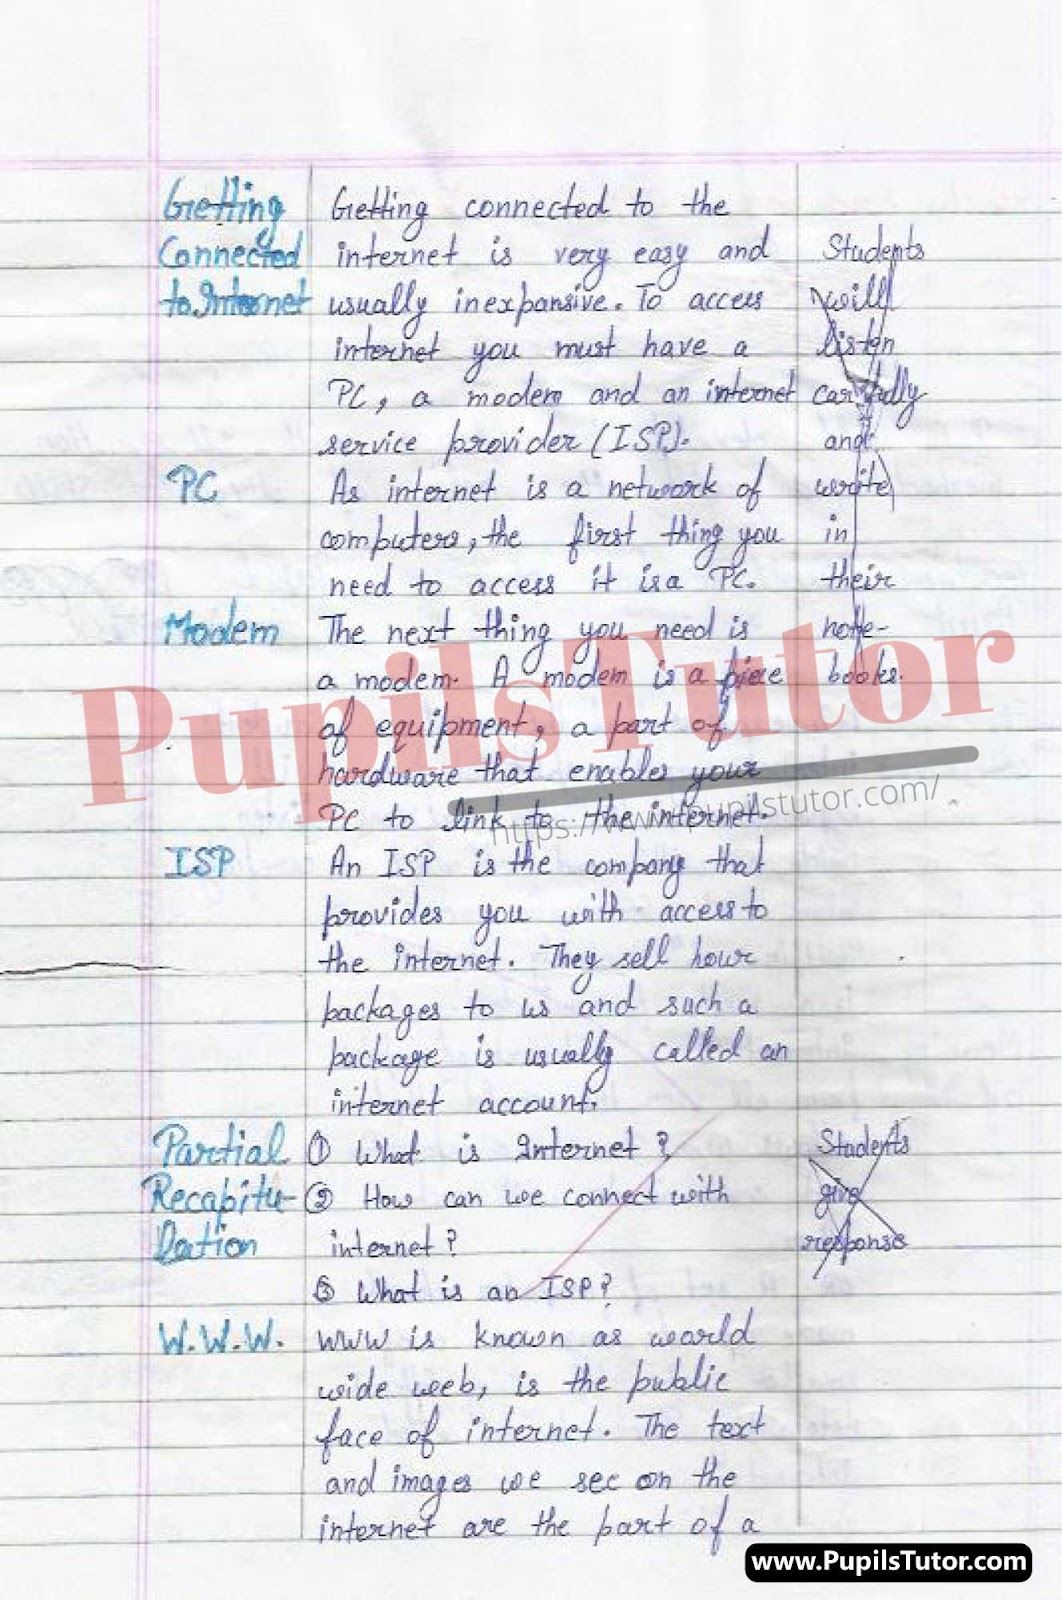 Getting Connected to Internet
Getting connected to the
internet is very easy and
usually inexpansive. To access
internet you must have a
PC, a modem and an internet
service provider (ISP).
Students
will
listen
carefully
and
write
in
their
note-
books.
PC
As internet is a network of
computers, the first thing you
need to access it is a PC.
Modem
The next thing you need is
a modem. A modem is a piece
of equipment, a part of
hardware that enables your
PC to link to the internet.
ISP
An ISP is the company that
provides you with access to
the internet. They sell hour
packages to us and such a
package is usually called an
internet account.
Partial
Recapitu-
lation
① What is Internet?
② How can we connect with
internet?
③ What is an ISP?
Students
give
response
W.W.W.
WWW is known as world
wide web, is the public
face of internet. The text
and images we see on the
internet are the part of a
Pupils Tutor
https://www.pupilstutor.com/
www.PupilsTutor.com